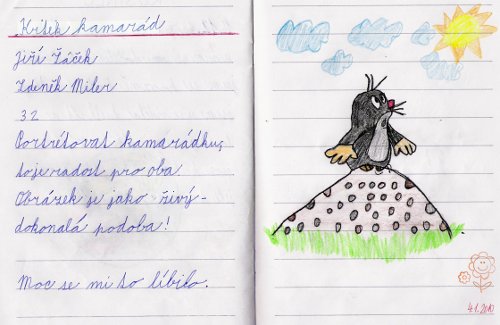 Krtek kamarád
Jiří Žáček
Zdeněk Miler
32
Portrétovat kamarádku,
to je radost pro oba
Obrázek je jako živý-
dokonalá podoba!
Moc se mi to líbilo.
4.1.2010